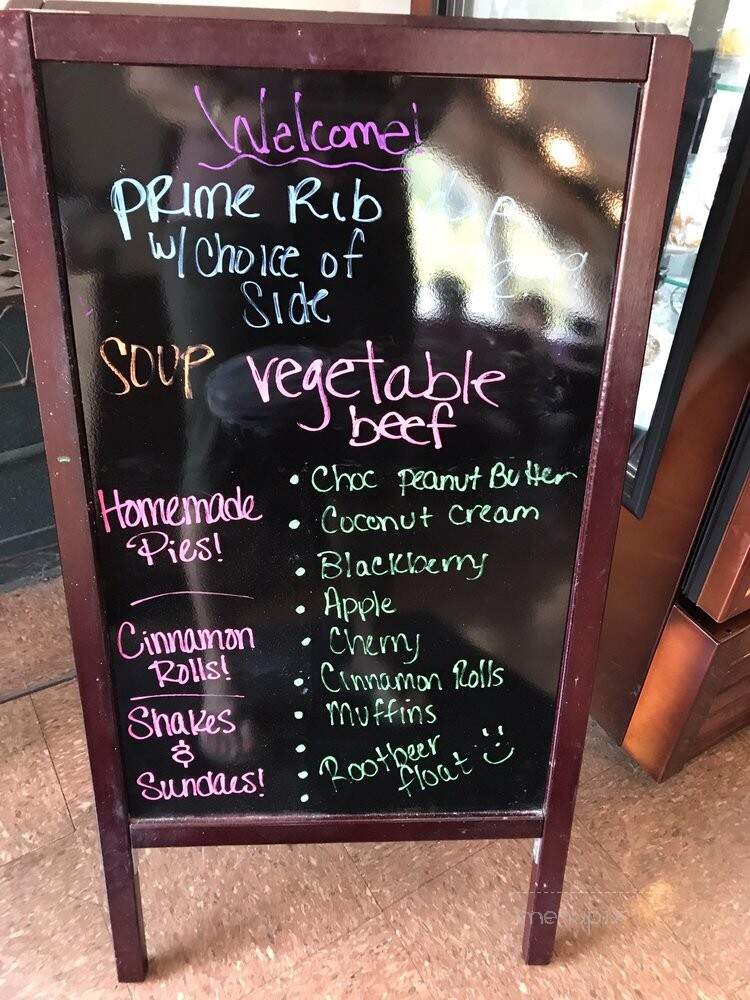 Welcome!
PRIME RIB
w/ Choice of
Side
SOUP vegetable
beef
Homemade
Pies!
Cinnamon
Rolls!
Shakes
&
Sundaes!
• Choc Peanut Butter
• Coconut Cream
• Blackberry
• Apple
• Cherry
• Cinnamon Rolls
• Muffins
•
• Rootbeer
float
•
menupix